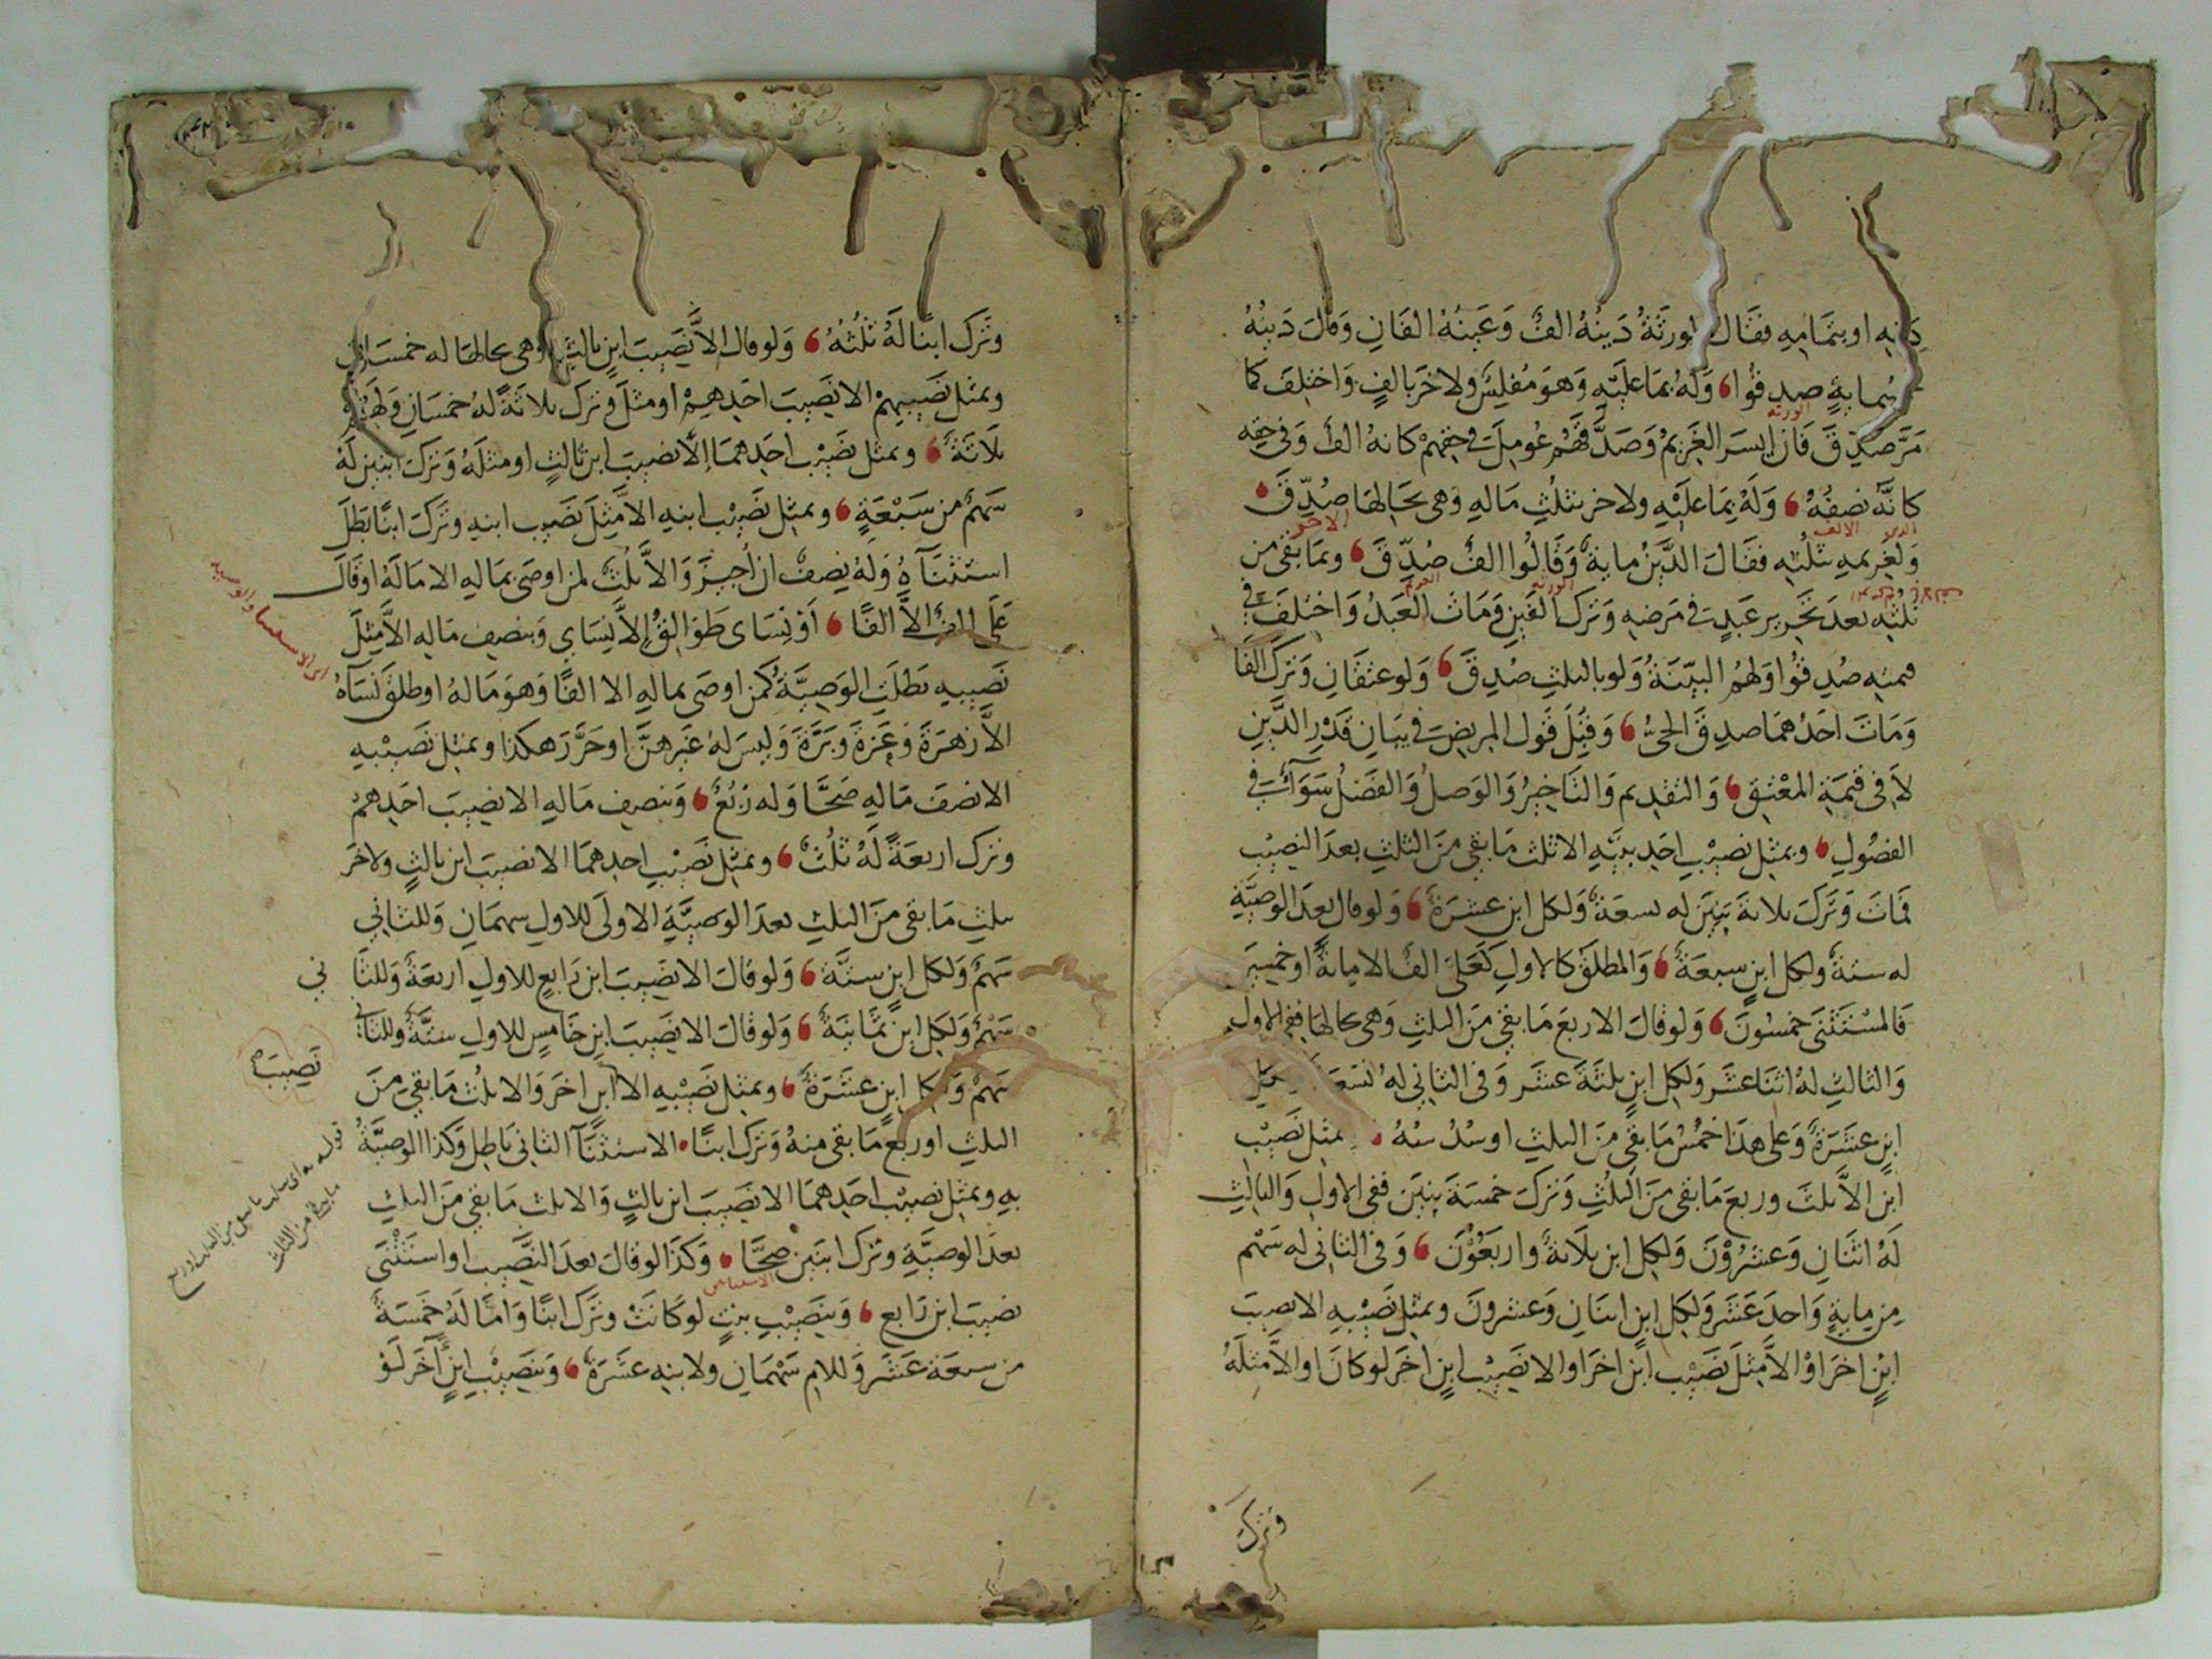 دينه او بتمامه فقال الورثة دينه الف وعينه الفان وقال دينه
صدقوا وله بما عليه وهو مفلس ولاخر بالف واختلف كما
مر صدق فان ايسر الغريم وصدقهم عومل في حقهم كانه الف وفي حقه
كانه نصفه وله بما عليه ولاخر بثلث ماله وهي بحالها صدق
ولغريمه بثلثه فقال الدين ماية وقالوا الف صدق وبما بقى من
ثلثه بعد تحرير عبد في مرضه وترك الفين ومات العبد واختلف في
قيمته صدقوا ولهم البينة ولو بالثلث صدق ولو عتقان وترك الفا
ومات احدهما صدق الحي وقبل قول المريض في بيان قدر الدين
لا في قيمة المعتق والتقديم والتاخير والوصل والفصل سواء في
الفصول وبمثل نصيب احد بنيه الا ثلث ما بقى من الثلث بعد النصيب
فمات وترك ثلاثة بنين له تسعة ولكل ابن عشرة ولو قال بعد الوصية
له ستة ولكل ابن سبعة والمطلق كالاول كعلى الف الا ماية او خمسين
فالمستثنى خمسون ولو قال الا ربع ما بقى من الثلث وهي بحالها ففي الاول
والثالث له اثنا عشر ولكل ابن ثلثة عشر وفي الثاني له تسعة
ابن عشرة وعلى هذا خمس ما بقى من الثلث او سدسه وبمثل نصيب
ابن الا ثلث وربع ما بقى من الثلث وترك خمسة بنين ففي الاول والثالث
له اثنان وعشرون ولكل ابن ثلاثة واربعون وفي الثاني له سهم
من ماية واحد عشر ولكل ابن اثنان وعشرون وبمثل نصيبه الا نصيب
ابن اخر او الا مثل نصيب ابن اخر او الا نصيب ابن اخر لو كان او الا مثله
وترك
وترك ابنا له ثلثه ولو قال الا نصيب ابن ثالث وهي بحالها له خمسان
وبمثل نصيبهم الا نصيب احدهم او مثله وترك ثلاثة له خمسان ولهم
ثلاثة وبمثل نصيب احدهما الا نصيب ابن ثالث او مثله وترك ابنين له
سهم من سبعة وبمثل نصيب ابنه الا مثل نصيب ابنه وترك ابنا بطل
استثناؤه وله نصف ان اجيز والا ثلث لمن اوصى بماله الا ماله او قال
على الف الا الفا او نسائي طوالق الا نسائي وبنصف ماله الا مثل
نصيبه بطلت الوصية كمن اوصى بماله الا الفا وهو ماله او طلق نساه
الا زهرة وعزة وبرة وليس له غيرهن او حرر هكذا وبمثل نصيبه
الا نصف ماله صحا وله ربع وبنصف ماله الا نصيب احدهم
وترك اربعة له ثلث وبمثل نصيب احدهما الا نصيب ابن ثالث ولاخر
بثلث ما بقى من الثلث بعد الوصية الاولى للاول سهمان وللثاني
سهم ولكل ابن ستة ولو قال الا نصيب ابن رابع للاول اربعة وللثا
ني
سهم ولكل ابن ثمانية ولو قال الا نصيب ابن خامس للاول ستة وللثاني
نصيب
سهم ولكل ابن عشرة وبمثل نصيبه الا ابن اخر والا ثلث ما بقى من
الثلث او ربع ما بقى منه وترك ابنا الاستثناء الثاني باطل وكذا الوصية
به وبمثل نصيب احدهما الا نصيب ابن ثالث والا ثلث ما بقى من الثلث
بعد الوصية وترك ابنين صحا وكذا لو قال بعد النصيب او استثنى
نصيب ابن رابع وبنصيب بنت لو كانت وترك ابنا واما له خمسة
من سبعة عشر وللام سهمان ولابنه عشرة وبنصيب ابن اخر لو